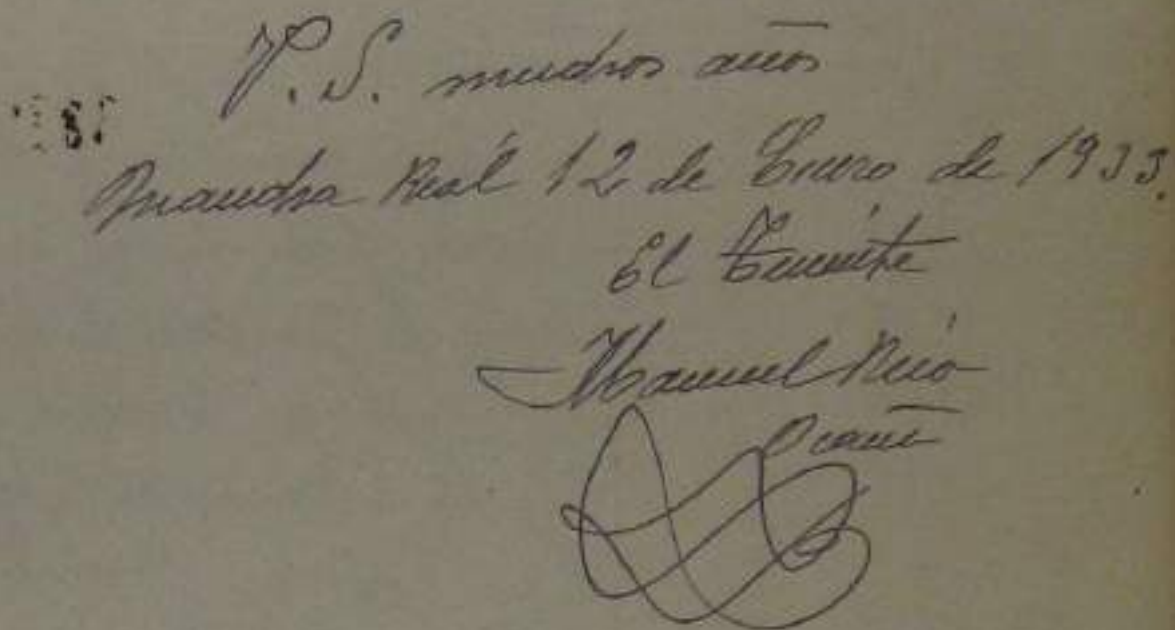 V. S. muchos años
Mancha Real 12 de Enero de 1933.
El Teniente
Manuel
Ocaña